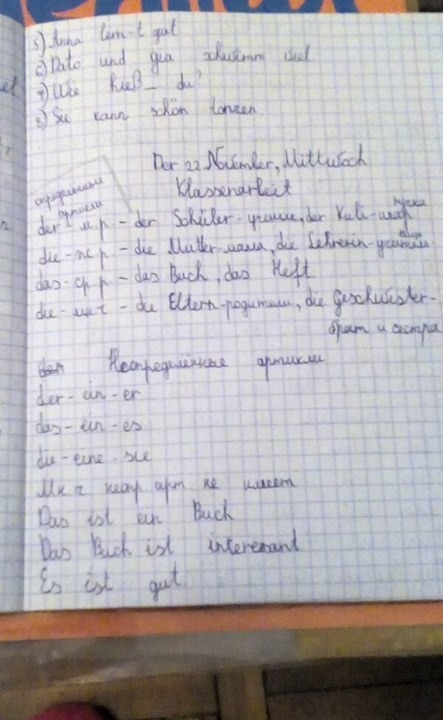 5) Anna lern-t gut
6) Pato und gia schwimm viel
7) Wie heiß_ du?
8) Sie kann schön tanzen.
Der 22 November, Mittwoch
Klassenarbeit
определенный
артикль
der м.р - der Schüler-ученик, der Kuli-шар
ручка
die - ж р - die Mutter-мама, die Lehrerin-учитель
ница
das - ср р - das Buch, das Heft
die - мн ч - die Eltern-родители, die Geschwister-
брат и сестра
Неопределённые артикли
der - ein - er
das - ein - es
die - eine - sie
Мн ч неопр арт не имеет
Das ist ein Buch
Das Buch ist interesant
Es ist gut